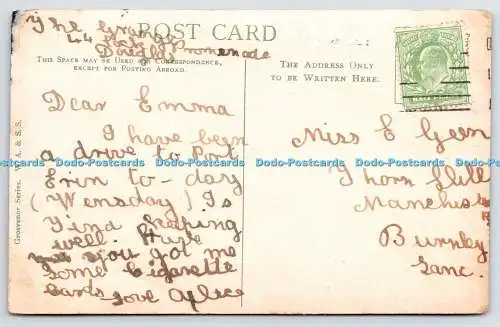 The
POST CARD
44
Douglas Promenade
THIS SPACE MAY BE USED FOR CORRESPONDENCE,
EXCEPT FOR POSTING ABROAD.
THE ADDRESS ONLY
TO BE WRITTEN HERE.
Dear Emma
I have been
a drive to Port
Erin to-day
(Wensday) Is
Tina keeping
well. Have
you got me
some Cigarette
cards love Alice
Miss E Geen
Thorn Hill
Manchester
Burnley
Lanc.
Grosvenor Series. W. A. & S. S.
Dodo-Postcards Dodo-Postcards Dodo-Postcards Dodo-Postcards Dodo-Postcards
Dodo-Postcards Dodo-Postcards Dodo-Postcards Dodo-Postcards Dodo-Postcards